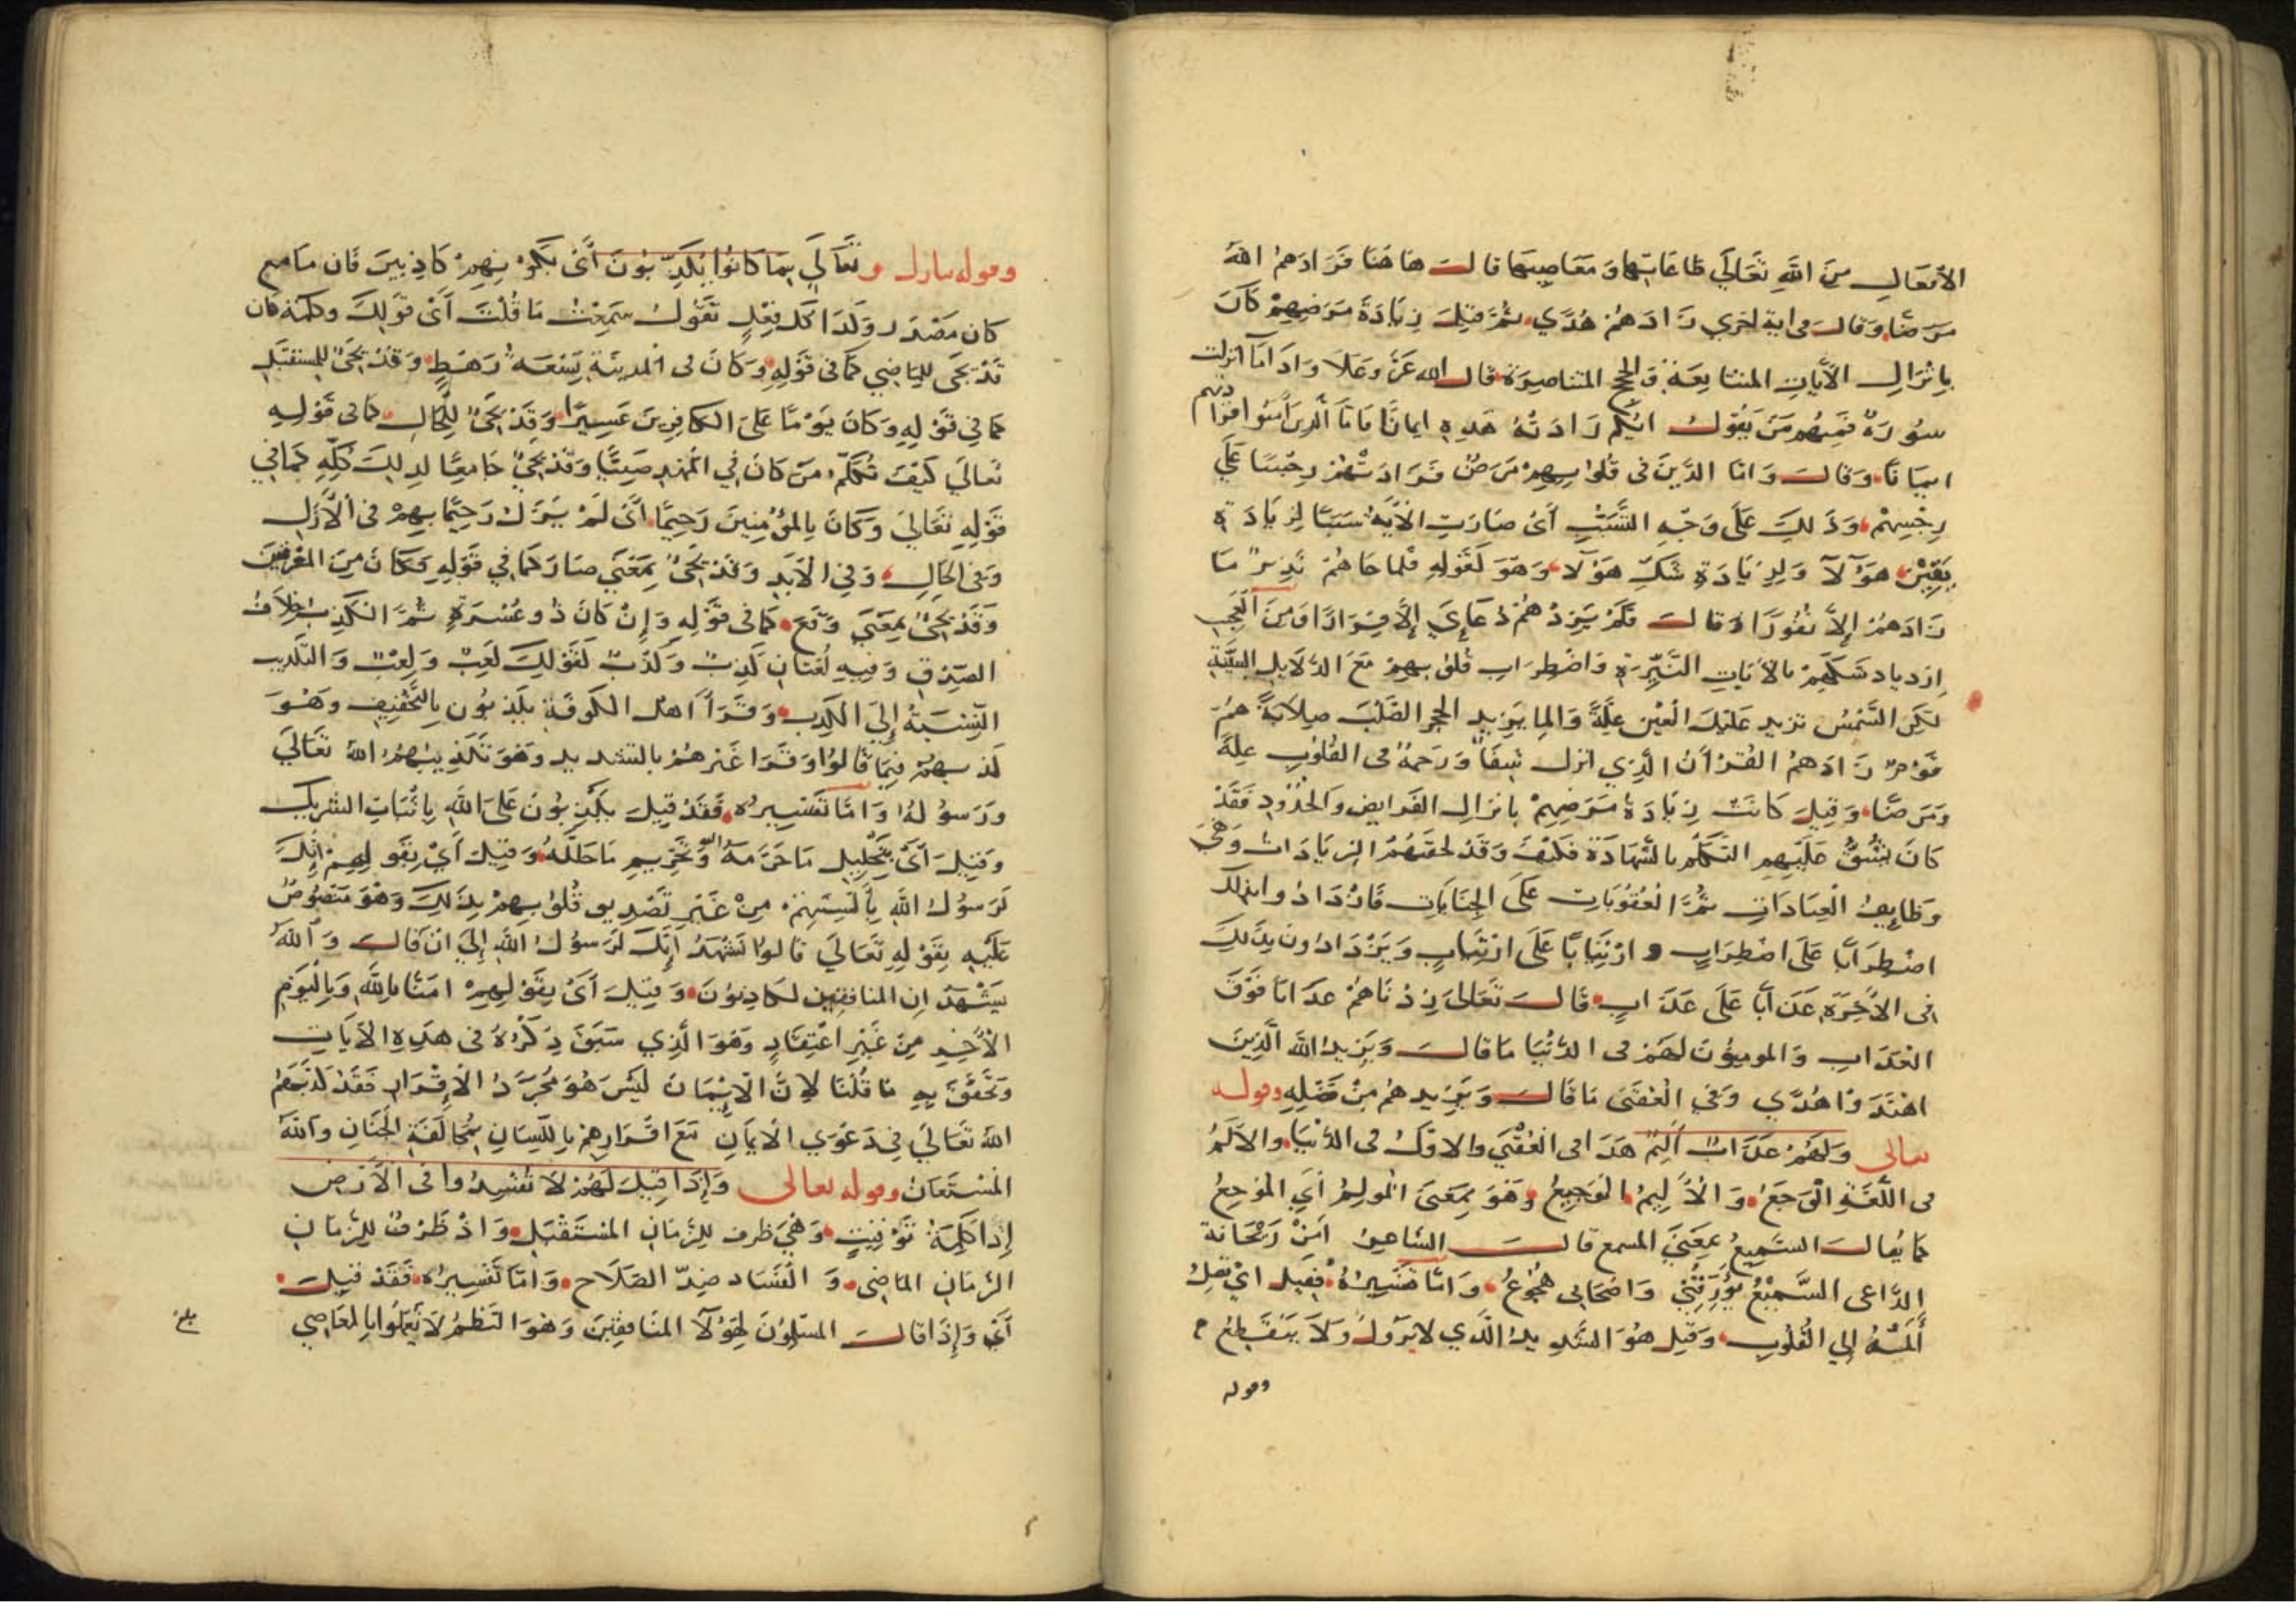 الأفعال من الله تعالى طاعاتها ومعاصيها قال هاهنا فزادهم الله
مرضا وقال في اية اخرى زادهم هدى ثم قيل زيادة مرضهم كان
بإنزال الآيات المتتابعة والحجج المتناصرة قال الله عز وعلا واذا ما انزلت
سورة فمنهم من يقول ايكم زادته هذه ايمانا فاما الذين آمنوا فزادتهم
ايمانا وقال واما الذين في قلوبهم مرض فزادتهم رجسا على
رجسهم وذلك على وجه التسبب أي صارت الآية سببا لزيادة
يقين هؤلا ولزيادة شك هؤلا وهو كقوله فلما جاهم نذير ما
زادهم إلا نفورا وقال فلم يزدهم دعاي إلا فرارا ومن العجب
ازدياد شكهم بالآيات النيرة واضطراب قلوبهم مع الدلايل البينة
لكن الشمس تزيد عليل العين علة والما يزيد الحجر الصلب صلابة هم
قوم زادهم القرآن الذي انزل شفا ورحمة في القلوب علة
ومرضا وقيل كانت زيادة مرضهم بانزال الفرايض والحدود فقد
كان يشق عليهم التكلم بالشهادة فكيف وقد لحقتهم الزيادات وهي
وظايف العبادات ثم العقوبات على الجنايات فازدادوا بذلك
اضطرابا على اضطراب وارتيابا على ارتياب ويزدادون بذلك
في الآخرة عذابا على عذاب قال تعالى زدناهم عذابا فوق
العذاب والمومنون لهم في الدنيا ما قال ويزيد الله الذين
اهتدوا هدى وفي العقبى ما قال ويزيدهم من فضله وقوله
تعالى ولهم عذاب أليم هذا في العقبى والاول في الدنيا والألم
في اللغة الوجع والأليم الوجيع وهو بمعنى المولم أي الموجع
كما يقال السميع بمعنى المسمع قال الشاعر أمن ريحانة
الداعي السميع يؤرقني واصحابي هجوع واما تفسيره فقيل اي يصل
ألمه إلى القلوب وقيل هو الشديد الذي لا يزول ولا ينقطع
وقوله
وقوله تبارك وتعالى بما كانوا يكذبون أي بكونهم كاذبين فان ما مع
كان مصدر وكذا كل فعل تقول سمعت ما قلت أي قولك وكلمة كان
قد تجي للماضي كما في قوله وكان في المدينة تسعة رهط وقد تجي للمستقبل
كما في قوله وكان يوما على الكافرين عسيرا وقد تجي للحال كما في قوله
تعالى كيف نكلم من كان في المهد صبيا وقد تجي جامعا لذلك كله كما في
قوله تعالى وكان بالمؤمنين رحيما أي لم يزل رحيما بهم في الأزل
وفي الحال وفي الأبد وقد تجي بمعنى صار كما في قوله فكان من المغرقين
وقد تجي بمعنى وقع كما في قوله وإن كان ذو عسرة ثم الكذب خلاف
الصدق وفيه لغتان كذب وكذب كقولك لعب ولعب والتكذيب
النسبة إلى الكذب وقرأ اهل الكوفة يكذبون بالتخفيف وهو
كذبهم فيما قالوا وقرا غيرهم بالتشديد وهو تكذيبهم الله تعالى
ورسوله واما تفسيره فقد قيل يكذبون على الله باثبات الشريك
وقيل أي بتحليل ما حرمه الله وتحريم ما حلله وقيل أي بقولهم انك
لرسول الله بألسنتهم من غير تصديق قلوبهم بذلك وهو منصوص
عليه بقوله تعالى قالوا نشهد إنك لرسول الله إلى ان قال والله
يشهد ان المنافقين لكاذبون وقيل أي بقولهم امنا بالله وباليوم
الآخر من غير اعتقاد وهو الذي سبق ذكره في هذه الآيات
وتحقق به ما قلنا لان الايمان ليس هو مجرد الاقرار فقد كذبهم
الله تعالى في دعوى الايمان مع اقرارهم باللسان بمخالفة الجنان والله
المستعان وقوله تعالى وإذا قيل لهم لا تفسدوا في الأرض
إذا كلمة توقيت وهي ظرف للزمان المستقبل واذ ظرف للزمان
الزمان الماضي والفساد ضد الصلاح واما تفسيره فقد قيل
أي وإذا قال المسلمون لهؤلا المنافقين وهو التظم لا تعملوا بالمعاصي
بلغ